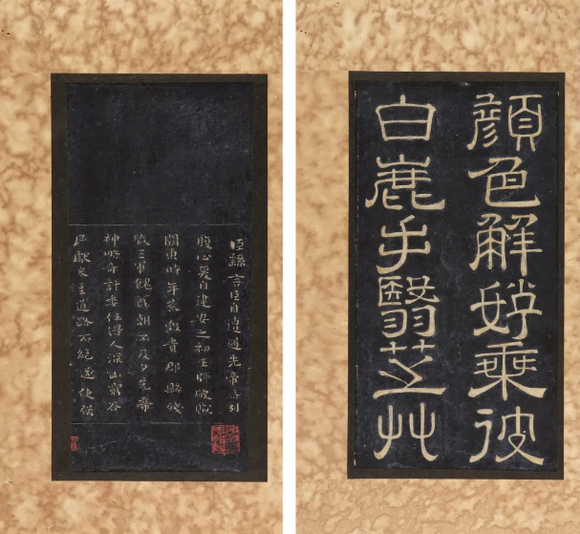 顏色解好乘彼
白鹿手翳芝艸
臣繇言臣自遭遇先帝忝列
腹心爰自建安之初王師破賊
關東時年荒穀貴郡縣殘
毀三軍餽饟朝不及夕先帝
神略奇計委任得人深山窮谷
民獻米豆道路不絕遂使強